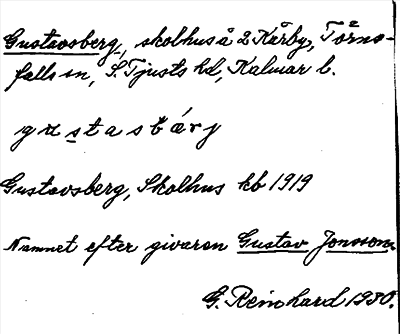 Gustavsberg, skolhus å 2 Kårby, Törns-
falls sn, S. Tjusts hd, Kalmar l.
gustasbärj
Gustavsberg, Skolhus kb 1919
Namnet efter givaren Gustav Jonsson.
G. Reinhard 1930.